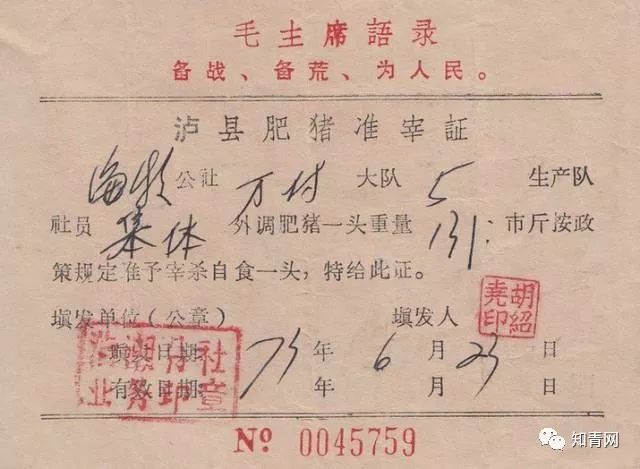 毛主席語录
备战、备荒、为人民。
泸县肥猪准宰証
海潮公社 万付 大队 5 生产队
社员 集体 外调肥猪一头重量 131 市斤按政
策规定准予宰杀自食一头，特给此证。
填发单位（公章） 填发人
胡紹尧印
填发日期 73年6月23日
有效日期 年 月 日
业务印章
№ 0045759
知青网